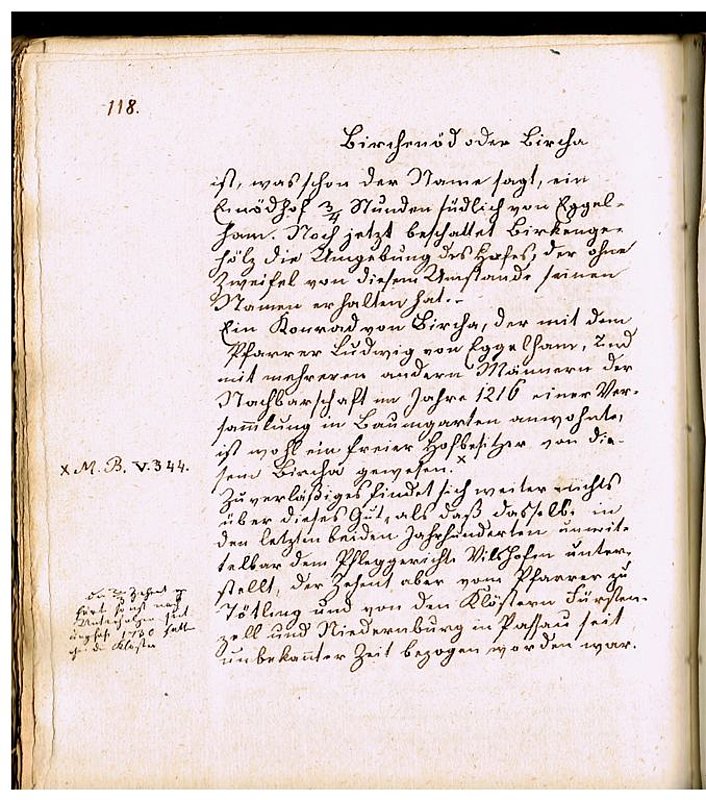 118.
Birchenöd oder Bircha
ist, was schon der Name sagt, ein
Einödhof 3/4 Stunden südlich von Eggel-
ham. Noch jetzt beschattet Birkenge-
hölz die Umgebung des Hofes, der ohne
Zweifel von diesem Umstande seinen
Namen erhalten hat.
Ein Konrad von Bircha, der mit dem
Pfarrer Ludwig von Eggelham, und
mit mehreren andern Männern der
Nachbarschaft im Jahre 1216 einer Ver-
sam̄lung in Baumgarten anwohnte,
ist wohl ein freier Hofbesitzer von die-
sem Bircha gewesen. x
x M. B. V. 344.
Zuverläßiges findet sich weiter nichts
über dieses Gut, als daß dasselbe in
den letzten beiden Jahrhunderten unmit-
telbar dem Pfleggerichte Vilshofen unter-
stellt, der Zehent aber vom Pfarrer zu
Tötling und von den Klöstern Fürsten-
zell und Niedernburg in Passau seit
unbekan̄ter Zeit bezogen worden war.
Zehent
1730
die Kloster